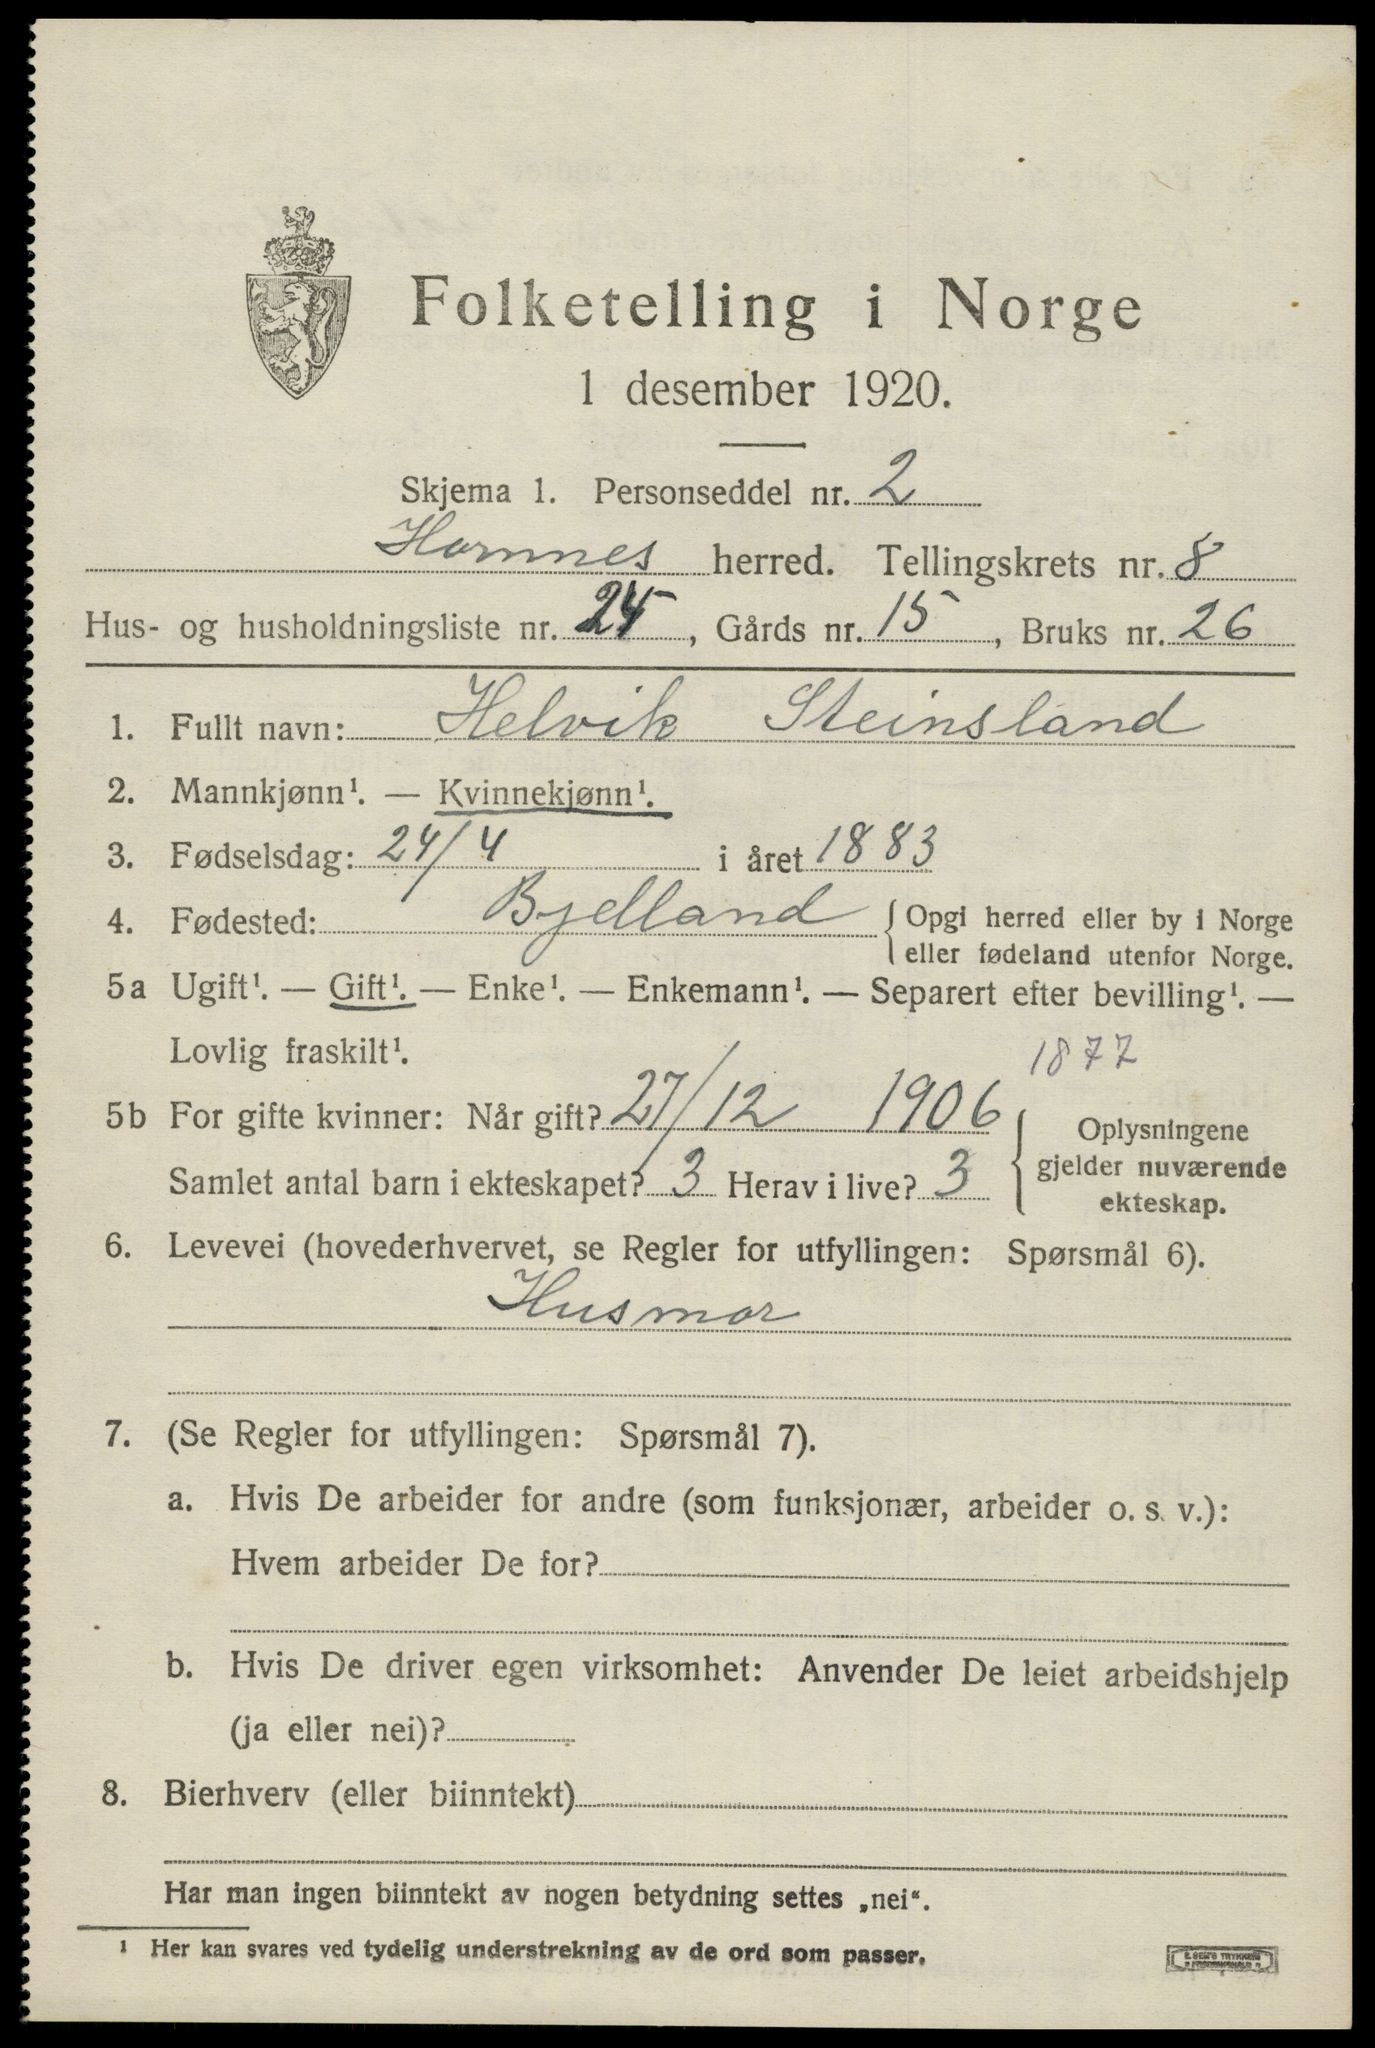 Folketelling i Norge
1 desember 1920.
Skjema 1. Personseddel nr. 2
Hornnes herred. Tellingskrets nr. 8
Hus- og husholdningsliste nr. 24, Gårds nr. 15, Bruks nr. 26
1. Fullt navn: Helvik Steinsland
2. Mannkjønn¹. — Kvinnekjønn¹.
3. Fødselsdag: 24/4 i året 1883
4. Fødested: Bjelland { Opgi herred eller by i Norge
eller fødeland utenfor Norge.
5a Ugift¹. — Gift¹. — Enke¹. — Enkemann¹. — Separert efter bevilling¹. —
Lovlig fraskilt¹.
1877
5b For gifte kvinner: Når gift? 27/12 1906
Samlet antal barn i ekteskapet? 3 Herav i live? 3
{ Oplysningene
gjelder nuværende
ekteskap.
6. Levevei (hovederhvervet, se Regler for utfyllingen: Spørsmål 6).
Husmor
7. (Se Regler for utfyllingen: Spørsmål 7).
a. Hvis De arbeider for andre (som funksjonær, arbeider o. s. v.):
Hvem arbeider De for?
b. Hvis De driver egen virksomhet: Anvender De leiet arbeidshjelp
(ja eller nei)?
8. Bierhverv (eller biinntekt)
Har man ingen biinntekt av nogen betydning settes „nei".
¹ Her kan svares ved tydelig understrekning av de ord som passer.